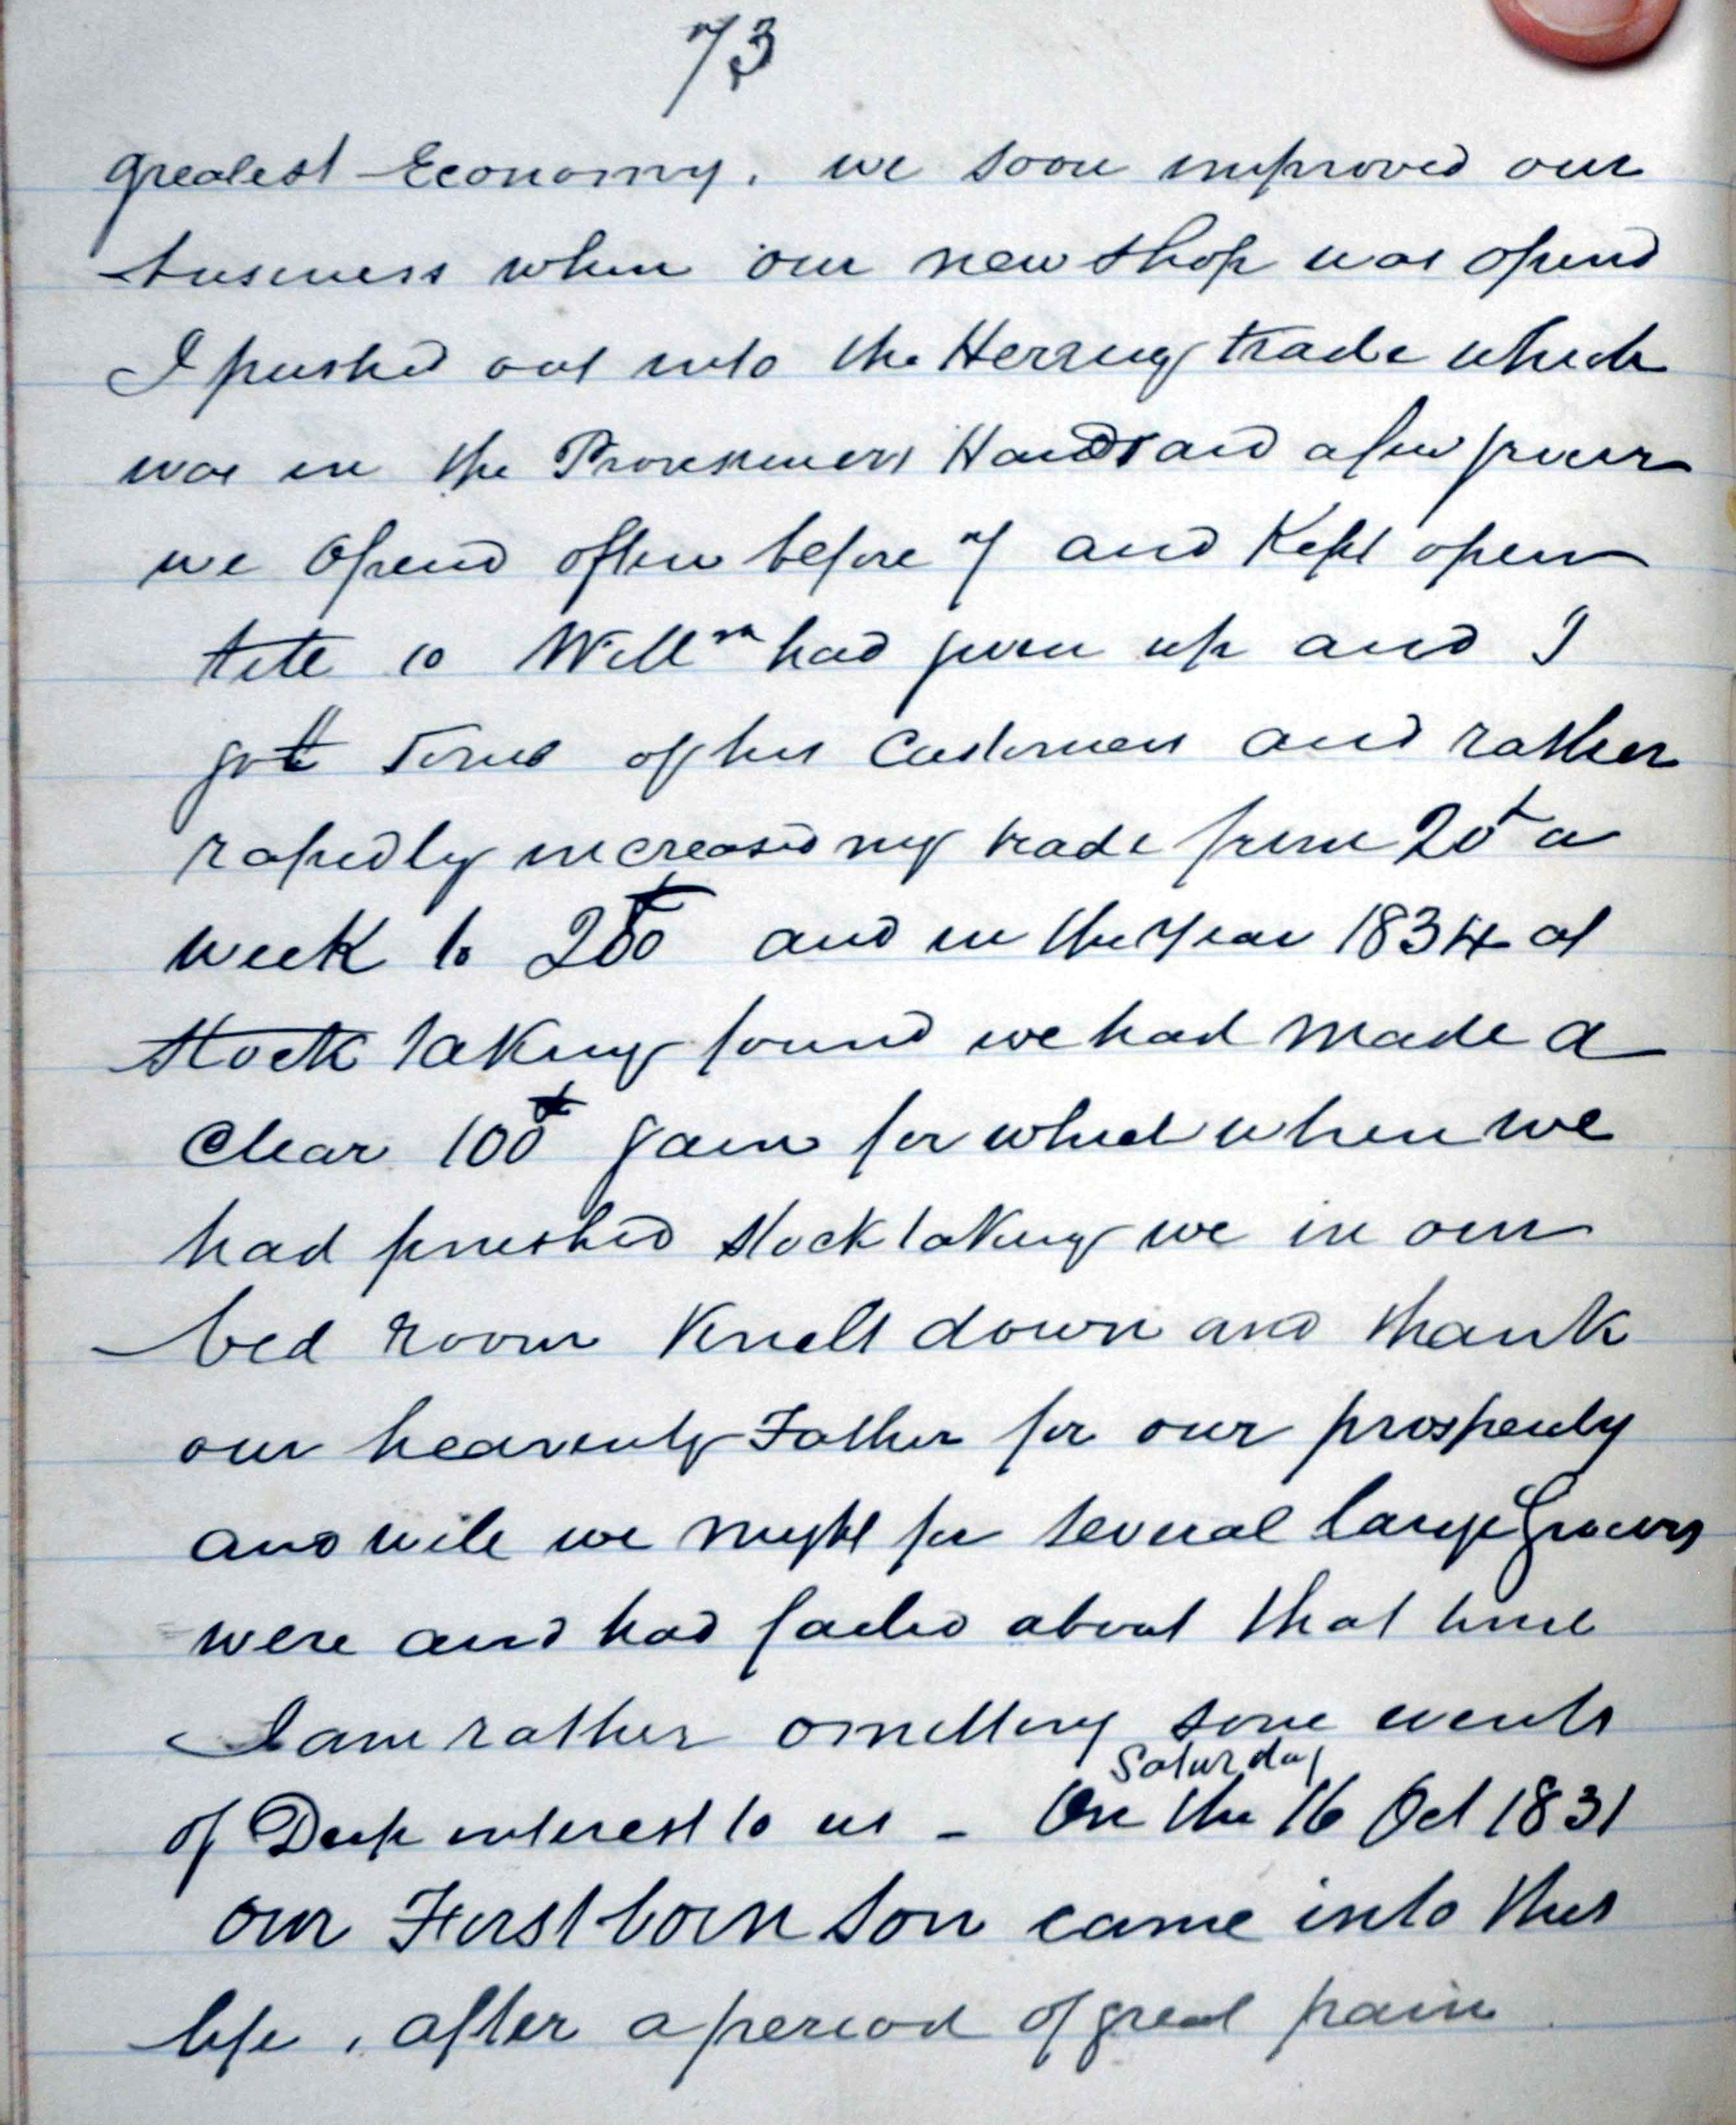 73
greatest Economy. we soon improved our
business when our new shop was opend
I pushed out into the Herring trade which
was in the Hands and a few
we Opend often before 7 and Kept open
tite 10 Will^m had given up and I
got some of his Customers and rather
rapedly increased my trade from 20£ a
week to 200£ and in the Year 1834 at
stock taking found we had made a
Clear 100£ gain for which when we
had finished stock taking we in our
bed room Knelt down and thank
our heavenly Father for our prosperity
and wile we might for several large Grocers
were and had failed about that time
I am rather omitting some events
Saturday
of Deep interest to us - On the 16 Oct 1831
our First born son came into this
life, after a period of great pain